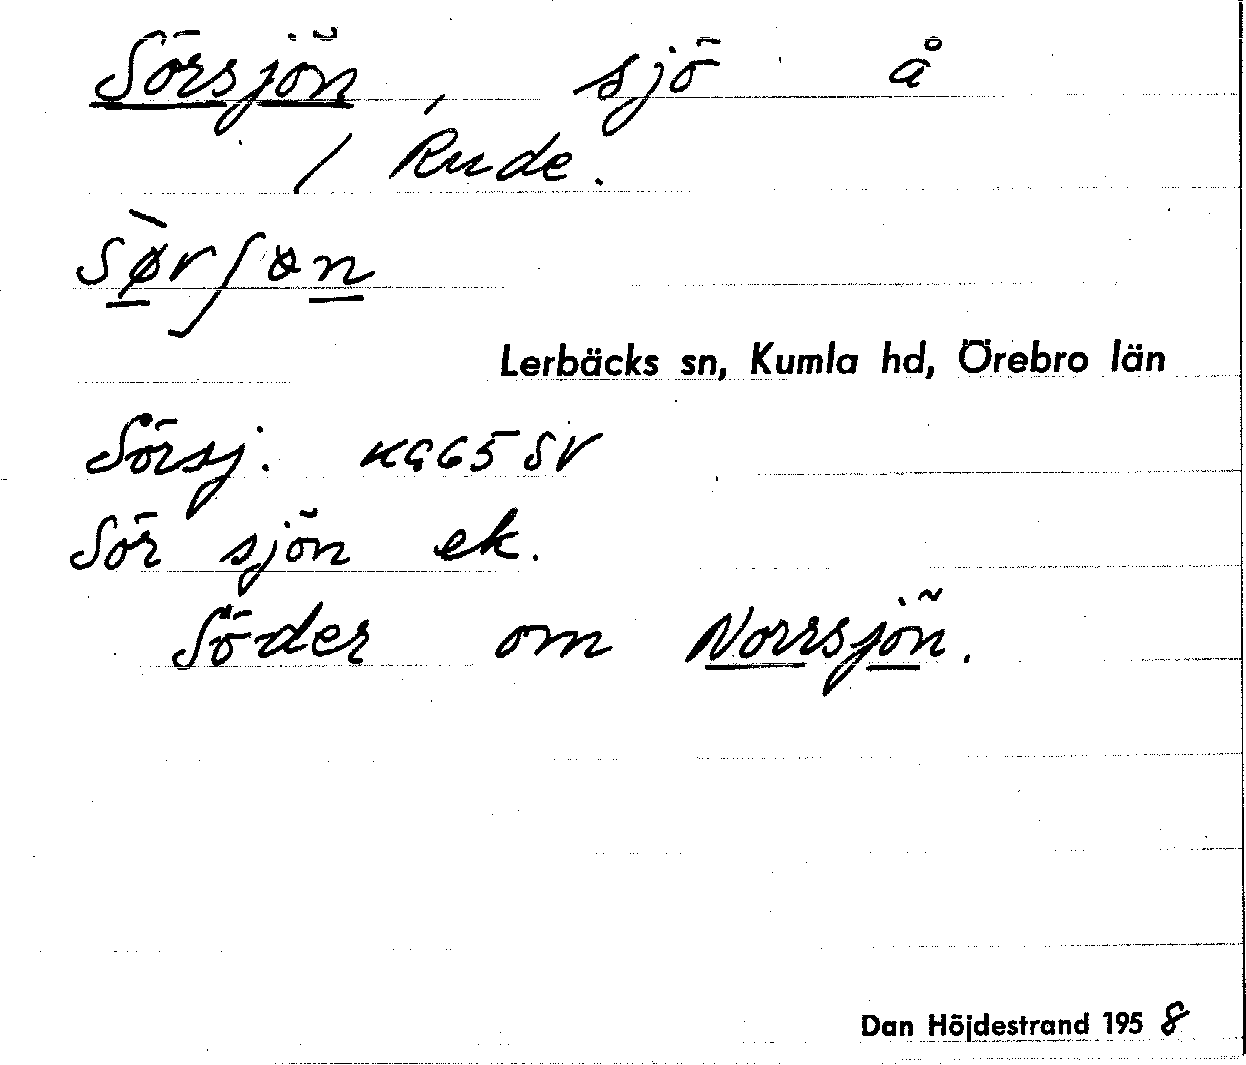 Sörsjön, sjö å
/ Rude.
sø̀rʃɵn
Lerbäcks sn, Kumla hd, Örebro län
Sörsj. KG65SV
Sör sjön ek.
Söder om Norrsjön.
Dan Höjdestrand 1958